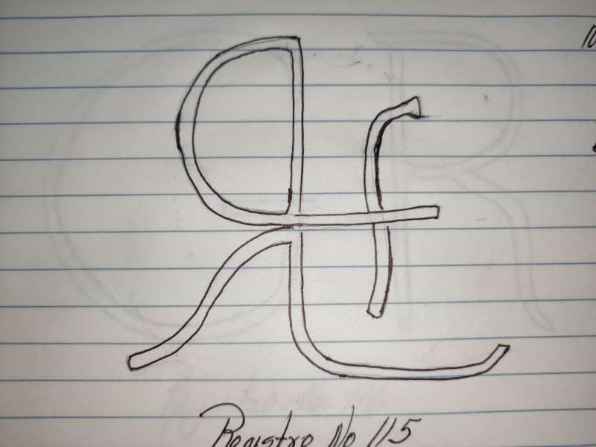 Registro No 115